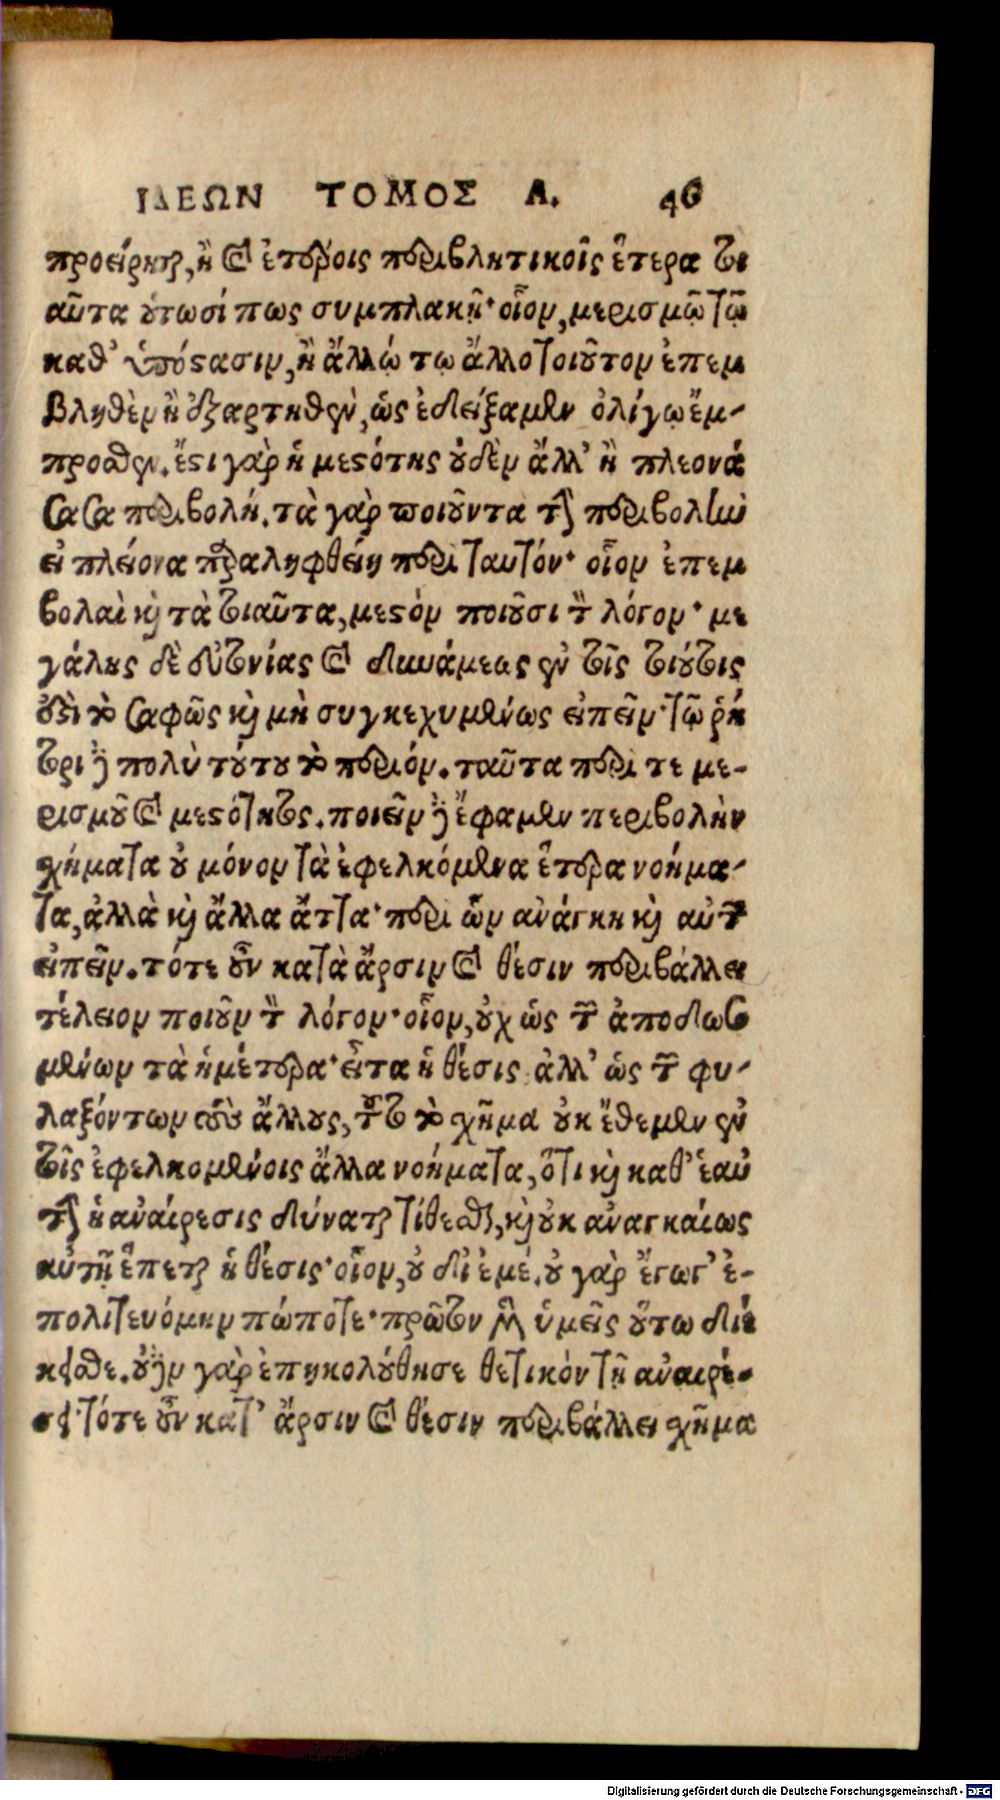 ΙΔΕΩΝ ΤΟΜΟΣ Α. 46
προείρηται, ἢ καὶ ἑτέροις περιβλητικοῖς ἕτερα τοι
αῦτα οὑτωσί πως συμπλακῇ· οἷον, μερισμῷ τῷ
καθ' ὑπόστασιν, ἢ ἄλλῴ τῳ ἄλλο τοιοῦτον ἐπεμ
βληθὲν ἢ ἐξαρτηθὲν, ὡς ἐδείξαμεν ὀλίγῳ ἔμ-
προσθεν. ἔστι γὰρ ἡ μεστότης οὐδὲν ἄλλ' ἢ πλεονά
σασα περιβολή. τὰ γὰρ ποιοῦντα τὴν περιβολὴν
εἰ πλείονα παραληφθείη περὶ ταυτόν· οἷον ἐπεμ
βολαὶ καὶ τὰ τοιαῦτα, μεστὸν ποιοῦσι τὸν λόγον· με
γάλης δὲ εὐτονίας καὶ δυνάμεως ἐν τοῖς τοιούτοις
ἐστὶ τὸ σαφῶς καὶ μὴ συγκεχυμένως εἰπεῖν· τῷ ῥή
τορι δὲ πολὺ τούτου τὸ περιόν. ταῦτα περί τε με-
ρισμοῦ καὶ μεστότητος. ποιεῖν δὲ ἔφαμεν περιβολὴν
χήματα οὐ μόνον τὰ ἐφελκόμενα ἕτερα νοήμα-
τα, ἀλλὰ καὶ ἄλλα ἄττα· περὶ ὧν ἀνάγκη καὶ αὐτῶν
εἰπεῖν. τότε οὖν κατὰ ἄρσιν καὶ θέσιν περιβάλλει
τέλειον ποιοῦν τὸν λόγον· οἷον, οὐχ ὡς τῶν ἀποδωσο
μένων τὰ ἡμέτερα· εἶτα ἡ θέσις ἀλλ' ὡς τῶν φυ-
λαξόντων τοὺς ἄλλους, τοῦτο τὸ χῆμα οὐκ ἔθεμεν ἐν
τοῖς ἐφελκομένοις ἄλλα νοήματα, ὅτι καὶ καθ' ἑαυ
τὴν ἡ ἀναίρεσις δύναται τίθεσθαι, καὶ οὐκ ἀναγκαίως
αὐτῇ ἕπεται ἡ θέσις· οἷον, οὐ δι' ἐμέ. οὐ γὰρ ἔγωγ' ἐ-
πολιτευόμην πώποτε· πρῶτον μὲν ὑμεῖς οὕτω διέ
κεισθε. οὐδὲν γὰρ ἐπηκολούθησε θετικὸν τῇ ἀναιρέ-
σει· τότε οὖν κατ' ἄρσιν καὶ θέσιν περιβάλλει χῆμα
Digitalisierung gefördert durch die Deutsche Forschungsgemeinschaft - DFG